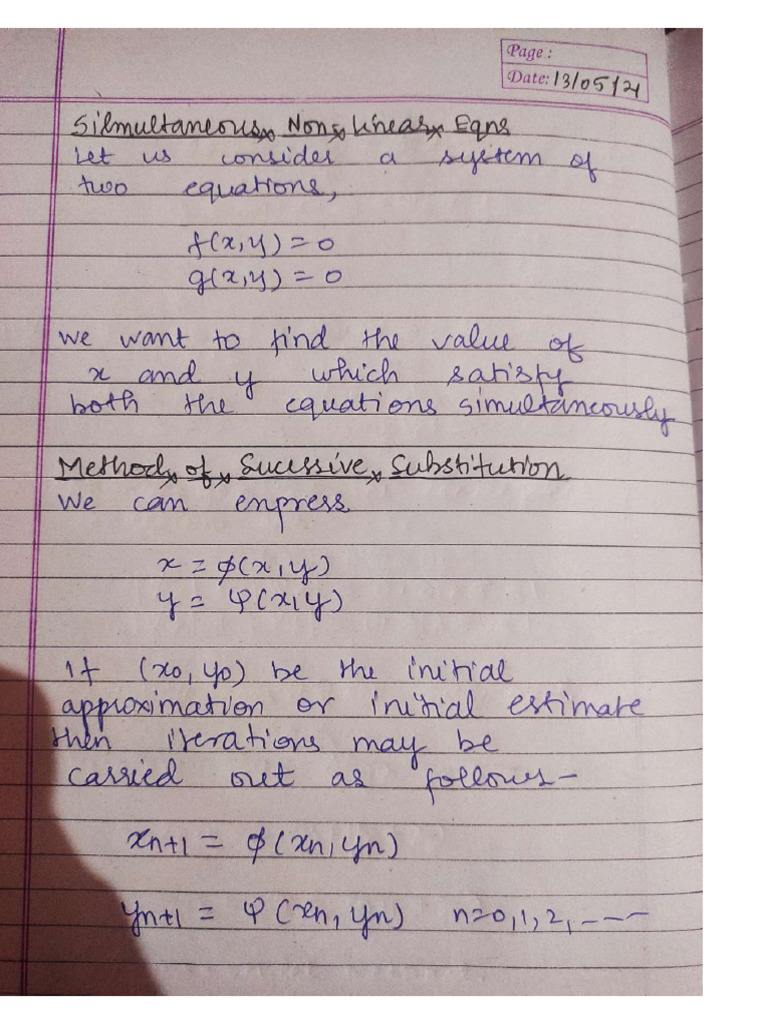 Page :
Date: 13/05/21
Silmultaneous Non-linear Eqns
Let us consider a system of
two equations,
f(x,y) = 0
g(x,y) = 0
We want to find the value of
x and y which satisfy
both the equations simultaneously
Method of Sucessive Substitution
We can enpress
x = φ(x,y)
y = ψ(x,y)
If (x0, y0) be the initial
approximation or initial estimate
then iterations may be
carried out as follows-
xn+1 = φ(xn,yn)
yn+1 = ψ(xn, yn) n=0,1,2,----